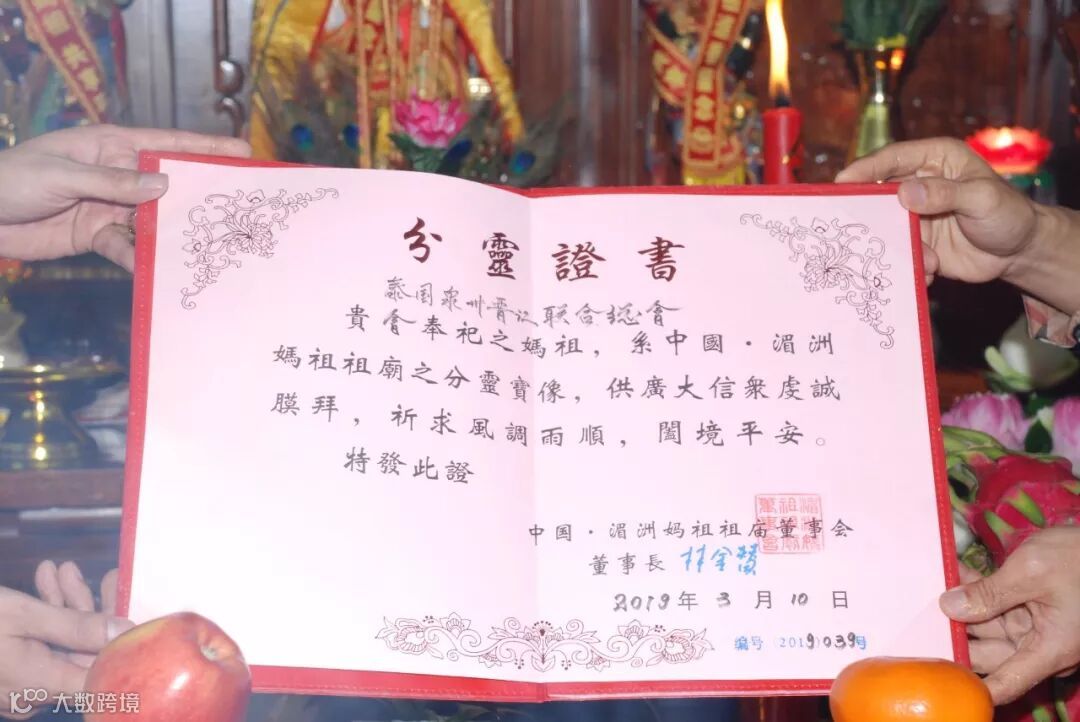 分靈證書
泰国泉州晋江联合总會
貴會奉祀之媽祖，系中國·湄洲
媽祖祖廟之分靈寶像，供廣大信衆虔誠
膜拜，祈求風調雨順，闔境平安。
特發此證
中国·湄洲妈祖祖庙董事会
董事長 林金贊
2019年3月10日
编号（2019）039号
大数跨境